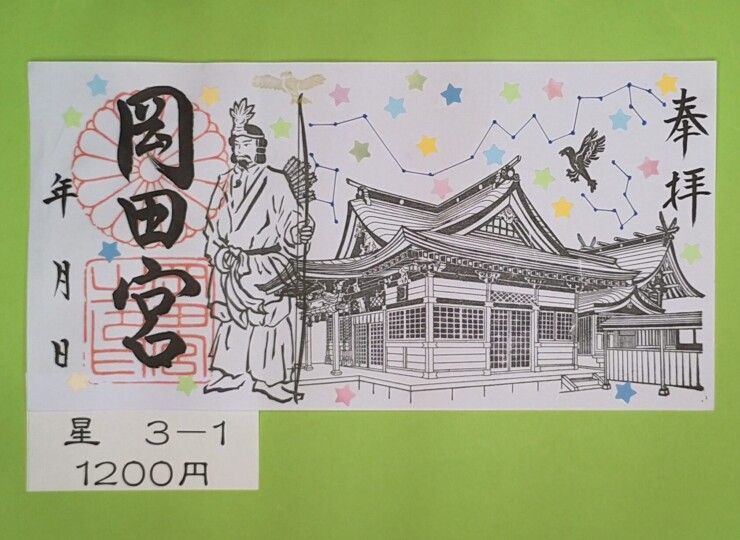 奉拝
岡田宮
年 月 日
星 3-1
1200円